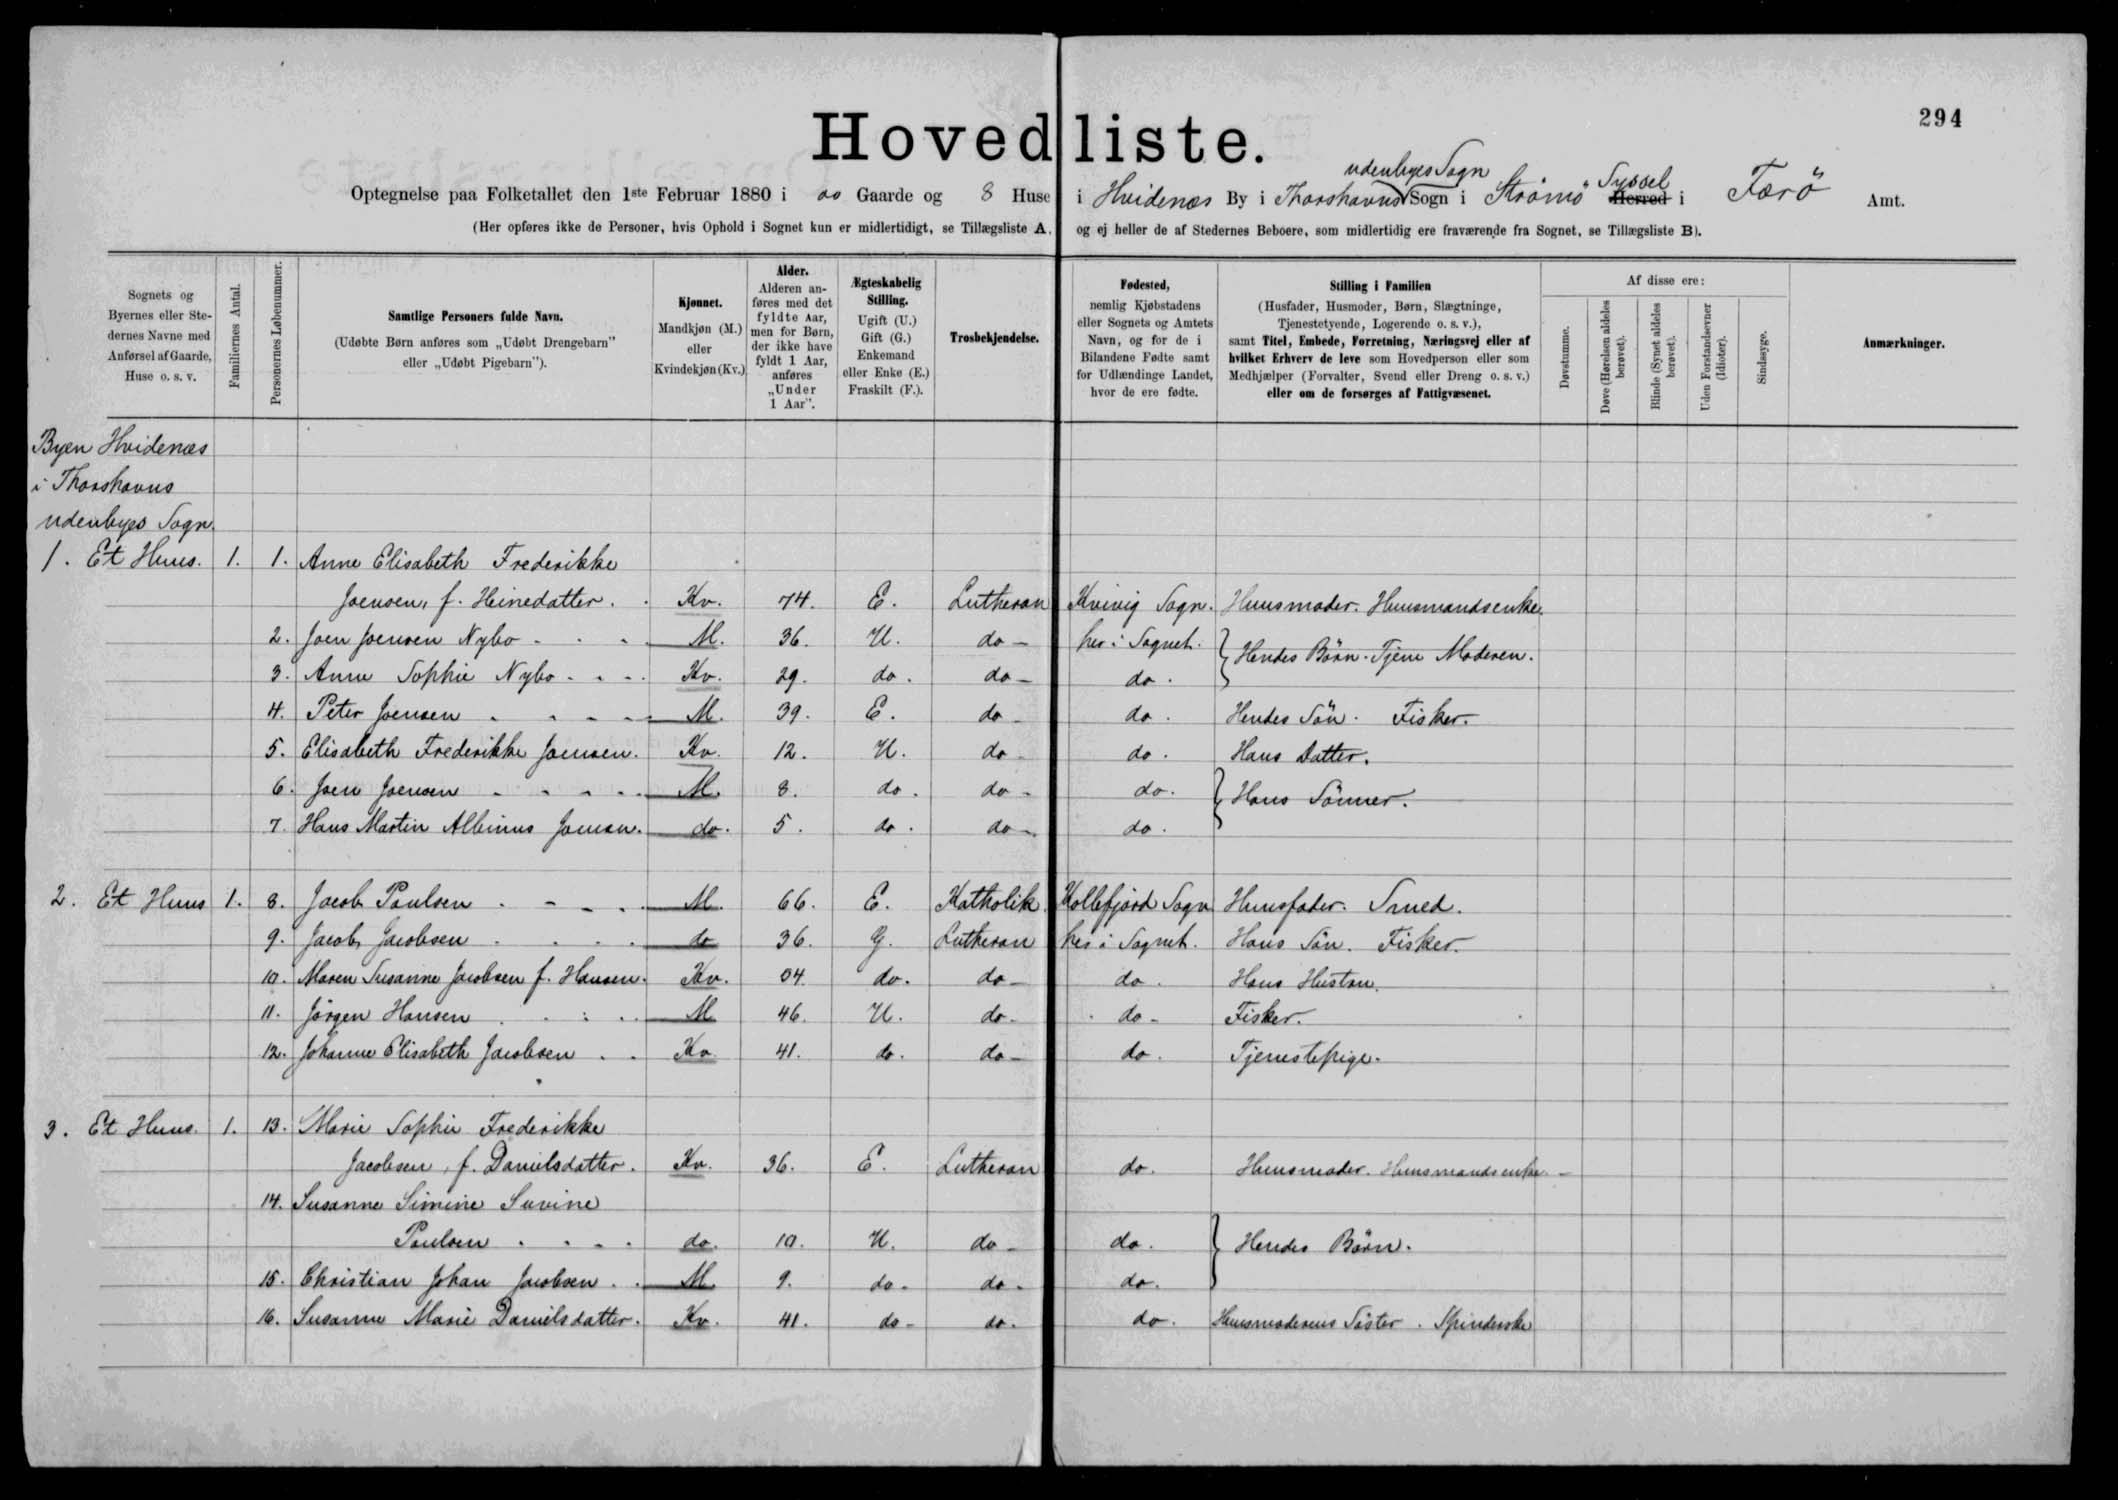 294
Hovedliste.
Optegnelse paa Folketallet den 1ste Februar 1880 i oo Gaarde og 8 Huse i Hvidenæs By i Thorshavns udenbyes Sogn Sogn i Strömö Syssel Herred i Færö Amt.
(Her opføres ikke de Personer, hvis Ophold i Sognet kun er midlertidigt, se Tillægsliste A, og ej heller de af Stedernes Beboere, som midlertidig ere fraværende fra Sognet, se Tillægsliste B).
Sognets og Byernes eller Stedernes Navne med Anførsel af Gaarde, Huse o. s. v.
Familiernes Antal.
Personernes Løbenummer.
Samtlige Personers fulde Navn. (Udøbte Børn anføres som „Udøbt Drengebarn" eller „Udøbt Pigebarn").
Kjønnet. Mandkjøn (M.) eller Kvindekjøn (Kv.)
Alder. Alderen anføres med det fyldte Aar, men for Børn, der ikke have fyldt 1 Aar, anføres „Under 1 Aar".
Ægteskabelig Stilling. Ugift (U.) Gift (G.) Enkemand eller Enke (E.) Fraskilt (F.).
Trosbekjendelse.
Fødested, nemlig Kjøbstadens eller Sognets og Amtets Navn, og for de i Bilandene Fødte samt for Udlændinge Landet, hvor de ere fødte.
Stilling i Familien (Husfader, Husmoder, Børn, Slægtninge, Tjenestetyende, Logerende o. s. v.), samt Titel, Embede, Forretning, Næringsvej eller af hvilket Erhverv de leve som Hovedperson eller som Medhjælper (Forvalter, Svend eller Dreng o. s. v.) eller om de forsørges af Fattigvæsenet.
Af disse ere:
Døvstumme.
Døve (Hørelsen aldeles berøvet).
Blinde (Synet aldeles berøvet).
Uden Forstandsevner (Idioter).
Sindssyge.
Anmærkninger.
Byen Hvidenæs
i Thorshavns
udenbyes Sogn.
1. Et Huus. 1. 1. Anne Elisabeth Frederikke
Joensen, f. Heinedatter. Kv. 74. E. Lutheran Kvivig Sogn. Huusmoder. Huusmandsenke.
2. Joen Joensen Nybo M. 36. U. do her i Sognet. } Hendes Börn. Tjene Moderen.
3. Anne Sophie Nybo Kv. 29. do. do do.
4. Peter Joensen M. 39. E. do do. Hendes Sön. Fisker.
5. Elisabeth Frederikke Joensen. Kv. 12. U. do do. Hans Datter.
6. Joen Joensen M. 8. do. do do. } Hans Sönner.
7. Hans Martin Albinus Joensen. do. 5. do. do do.
2. Et Huus 1. 8. Jacob Poulsen M. 66. E. Katholik. Kollefjörd Sogn Huusfader. Smed.
9. Jacob Jacobsen do 36. G. Lutheran her i Sognet. Hans Sön. Fisker.
10. Maren Susanne Jacobsen f. Hansen. Kv. 04. do. do do. Hans Hustru.
11. Jörgen Hansen M 46. U. do do Fisker.
12. Johanne Elisabeth Jacobsen Kv. 41. do. do do. Tjenestepige.
3. Et Huus. 1. 13. Marie Sophie Frederikke
Jacobsen, f. Danielsdatter. Kv. 36. E. Lutheran do. Huusmoder. Huusmandsenke.
14. Susanne Simine Suvine
Poulsen do. 10. U. do do. } Hendes Börn.
15. Christian Johan Jacobsen M 9. do do do.
16. Susanne Marie Danielsdatter. Kv. 41. do do. do. Huusmoderens Söster. Spinderske